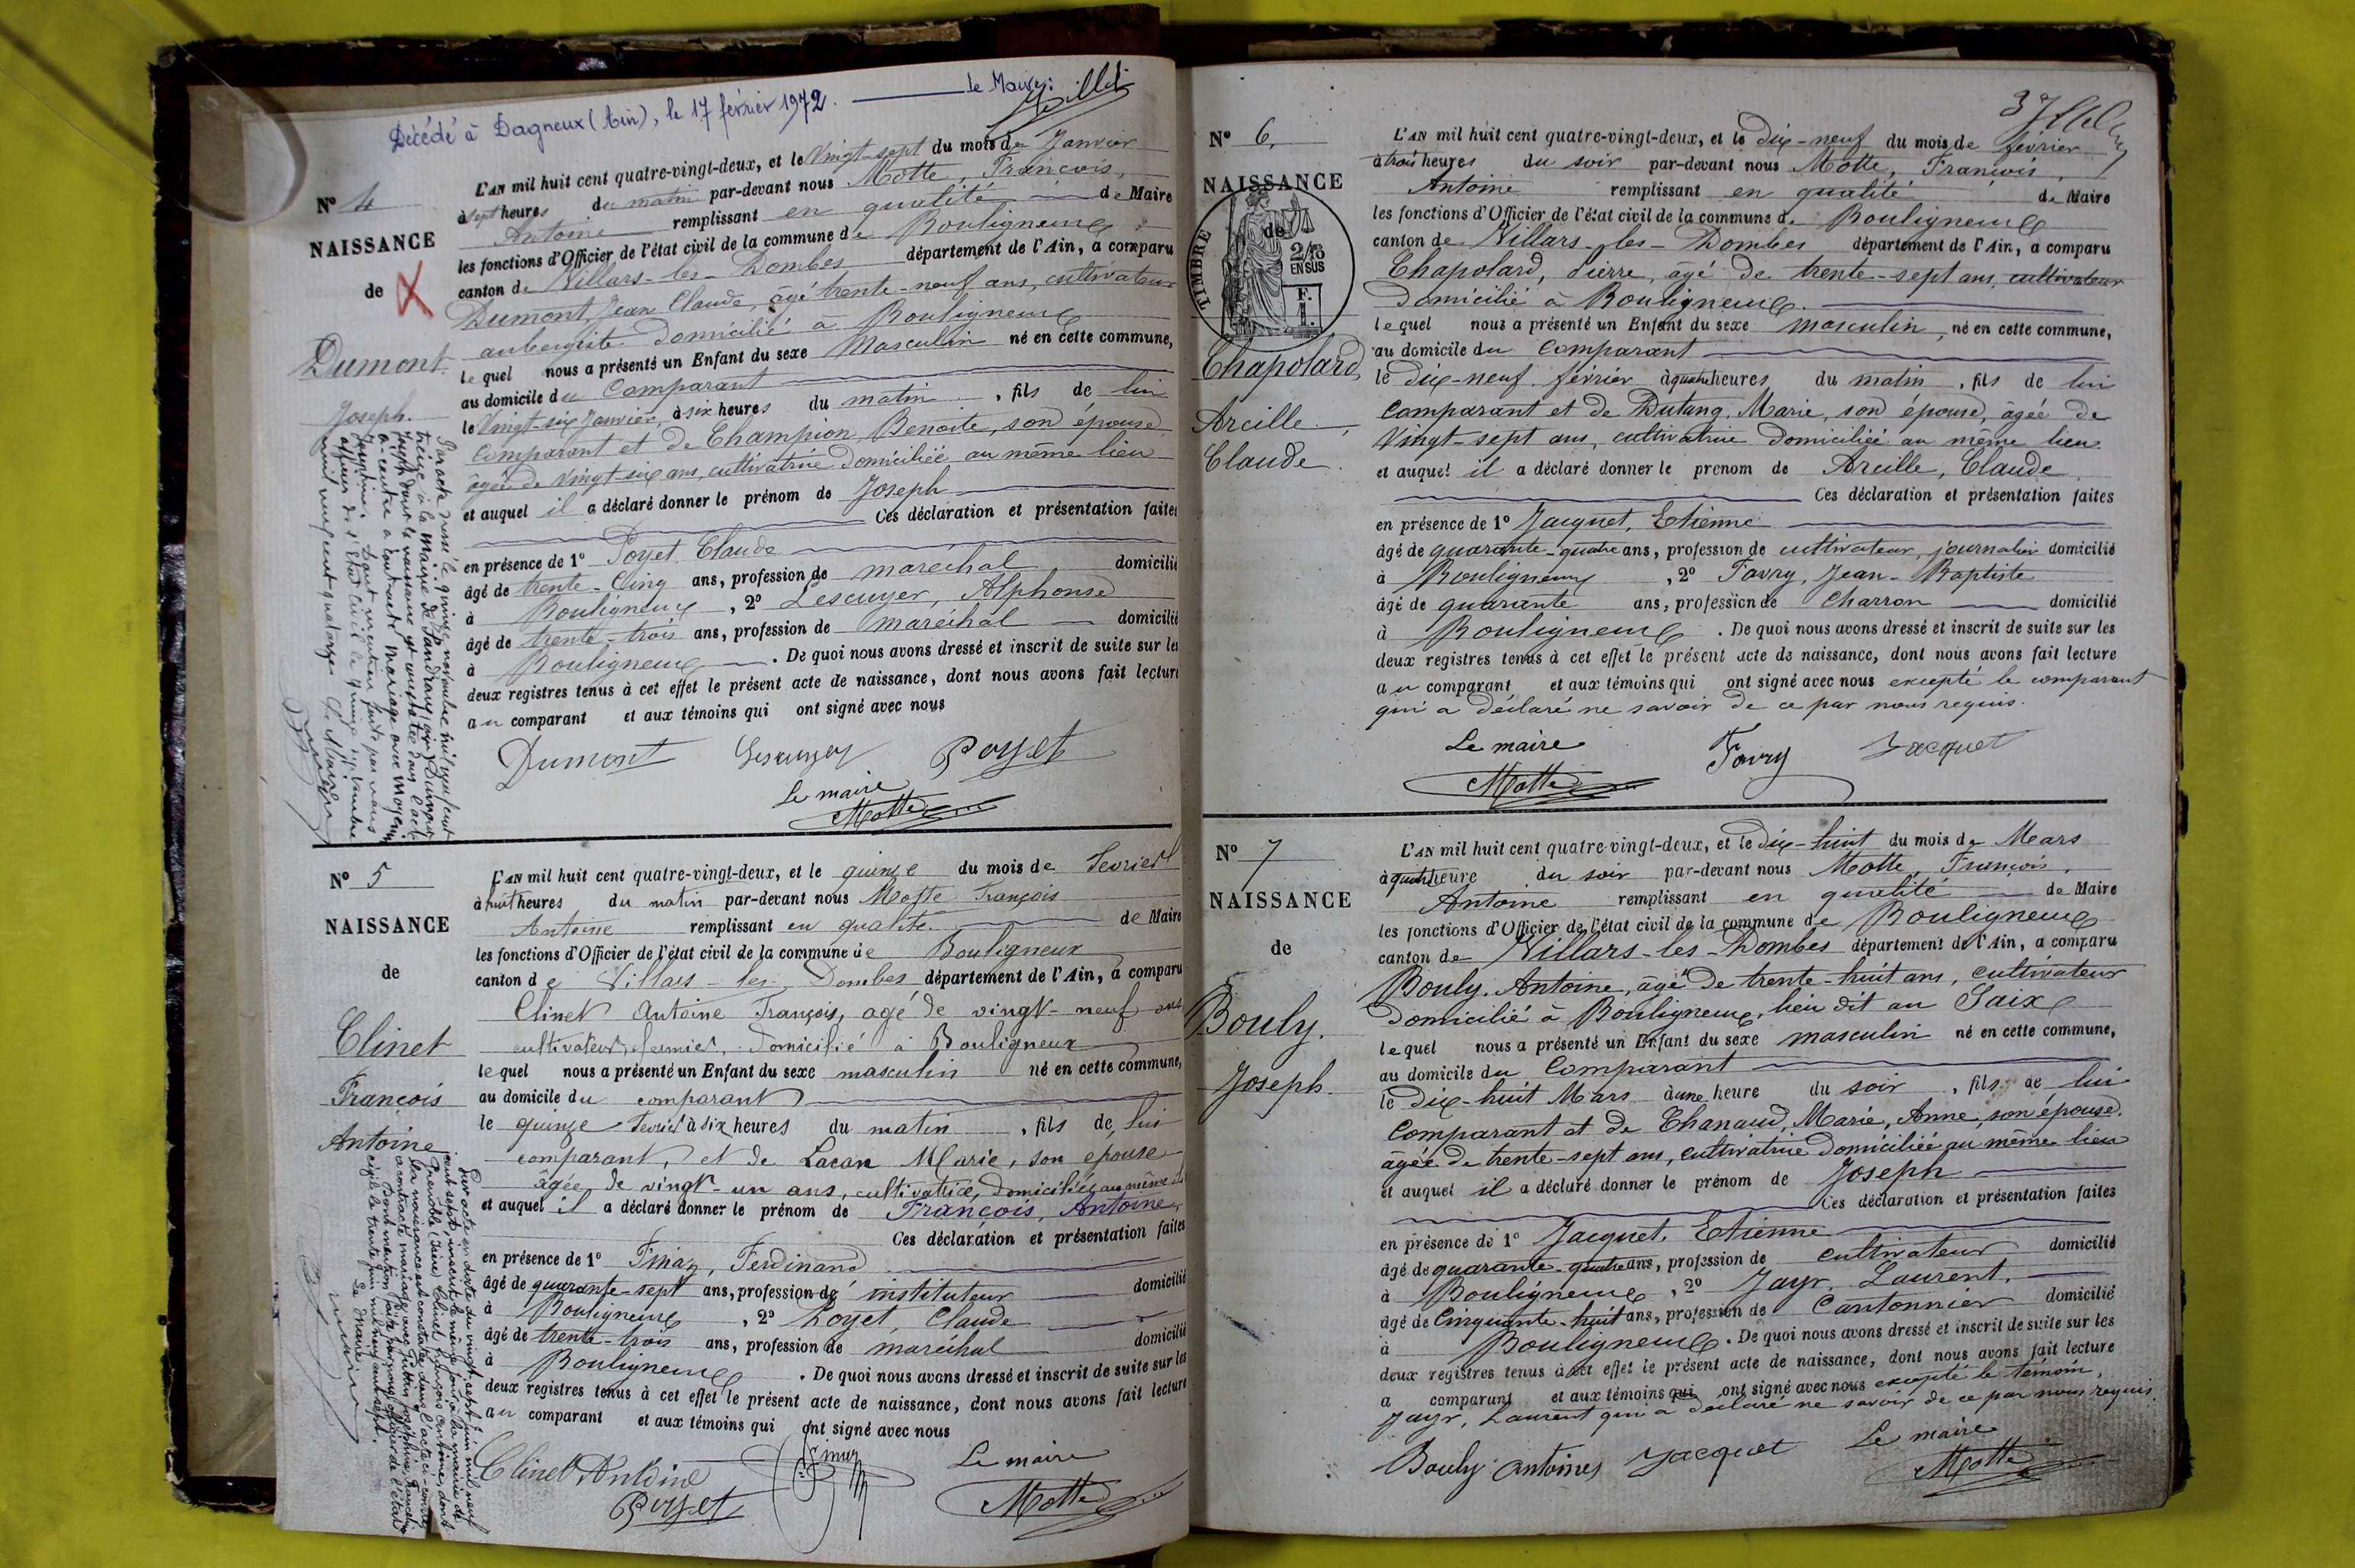 Décédé à Dagneux (Ain), le 17 février 1972. Le Maire:
N° 4
NAISSANCE
de
Dumont
Joseph.
L'AN mil huit cent quatre-vingt-deux, et le Vingt-sept du mois de Janvier
à sept heures du matin par-devant nous Motte, François,
Antoine remplissant en qualité de Maire
les fonctions d'Officier de l'état civil de la commune de Bouligneux
canton de Villars-les-Dombes département de l'Ain, a comparu
Dumont, Jean Claude, âgé trente-neuf ans, cultivateur
aubergiste domicilié à Bouligneux
lequel nous a présenté un Enfant du sexe Masculin né en cette commune,
au domicile du Comparant
le Vingt-six Janvier, à six heures du matin, fils de lui
Comparant et de Champion, Benoite, son épouse
agée de Vingt-six ans, cultivatrice domiciliée au même lieu
et auquel il a déclaré donner le prénom de Joseph
Ces déclaration et présentation faites
en présence de 1° Poyet, Claude
âgé de trente-Cinq ans, profession de maréchal domicilié
à Bouligneux, 2° Lescuyer, Alphonse
âgé de trente-trois ans, profession de maréchal domicilié
à Bouligneux. De quoi nous avons dressé et inscrit de suite sur les
deux registres tenus à cet effet le présent acte de naissance, dont nous avons fait lecture
au comparant et aux témoins qui ont signé avec nous
Dumont Lescuyer Poyet
Le maire
Motte
Par acte dressé le quinze novembre mil neuf cent
treize à la mairie de Sandrans (Ain) Dumont
Joseph dont la naissance est constatée dans l'acte
ci-contre a contracté mariage avec
Joséphine. Dont mention faite par nous
officier de l'Etat Civil le quinze septembre
mil neuf cent quatorze. Le Maire
N° 5
NAISSANCE
de
Clinet
François
Antoine
L'AN mil huit cent quatre-vingt-deux, et le quinze du mois de Fevrier
à huit heures du matin par-devant nous Motte François
Antoine remplissant en qualité de Maire
les fonctions d'Officier de l'état civil de la commune de Bouligneux
canton de Villars-les-Dombes département de l'Ain, a comparu
Clinet Antoine François, agé de vingt-neuf ans
cultivateur, fermier, domicilié à Bouligneux
lequel nous a présenté un Enfant du sexe masculin né en cette commune,
au domicile du comparant
le quinze Fevrier à six heures du matin, fils de lui
comparant, et de Lacan Marie, son epouse
âgée de vingt-un ans, cultivatrice, domiciliée au même
et auquel il a déclaré donner le prénom de François, Antoine,
Ces déclaration et présentation faites
en présence de 1° Ferdinand
âgé de quarante-sept ans, profession de instituteur domicilié
à Bouligneux, 2° Poyet, Claude
âgé de trente-trois ans, profession de maréchal domicilié
à Bouligneux. De quoi nous avons dressé et inscrit de suite sur les
deux registres tenus à cet effet le présent acte de naissance, dont nous avons fait lecture
au comparant et aux témoins qui ont signé avec nous
Clinet Antoine Le maire
Poyet Motte
Par acte en date du vingt-sept juin mil neuf
cent sept, inscrit le même jour à la mairie de
Grenoble (Isère) Clinet François Antoine, dont
la naissance est constatée dans l'acte ci-contre
a contracté mariage avec
Dont mention faite par nous officier de l'état
civil le trente juin mil neuf cent sept.
Le Maire
N° 6,
NAISSANCE
de
TIMBRE
2/10
EN SUS
F.
1.
Chapolard,
Arcille,
Claude.
L'AN mil huit cent quatre-vingt-deux, et le dix-neuf du mois de février
à trois heures du soir par-devant nous Motte, François,
Antoine remplissant en qualité de Maire
les fonctions d'Officier de l'état civil de la commune de Bouligneux
canton de Villars-les-Dombes département de l'Ain, a comparu
Chapolard, Pierre, âgé de trente-sept ans, cultivateur
domicilié à Bouligneux.
lequel nous a présenté un Enfant du sexe masculin, né en cette commune,
au domicile du Comparant
le dix-neuf février à quatre heures du matin, fils de lui
Comparant et de Dutang, Marie, son épouse, âgée de
Vingt-sept ans, cultivatrice domiciliée au même lieu
et auquel il a déclaré donner le prénom de Arcille, Claude
Ces déclaration et présentation faites
en présence de 1° Jacquet, Etienne
âgé de quarante-quatre ans, profession de cultivateur, journalier domicilié
à Bouligneux, 2° Favry, Jean-Baptiste
âgé de quarante ans, profession de Charron domicilié
à Bouligneux. De quoi nous avons dressé et inscrit de suite sur les
deux registres tenus à cet effet le présent acte de naissance, dont nous avons fait lecture
au comparant et aux témoins qui ont signé avec nous excepté le comparant
qui a déclaré ne savoir de ce par nous requis.
Le maire Favry Jacquet
Motte
N° 7
NAISSANCE
de
Bouly.
Joseph.
L'AN mil huit cent quatre-vingt-deux, et le dix-huit du mois de Mars
à quatre heure du soir par-devant nous Motte, François,
Antoine remplissant en qualité de Maire
les fonctions d'Officier de l'état civil de la commune de Bouligneux
canton de Villars-les-Dombes département de l'Ain, a comparu
Bouly, Antoine, âgé de trente-huit ans, cultivateur
domicilié à Bouligneux, lieu dit au Saix
lequel nous a présenté un Enfant du sexe masculin né en cette commune,
au domicile du Comparant
le dix-huit Mars à une heure du soir, fils de lui
Comparant et de Chanaud, Marie, Anne, son épouse,
âgée de trente-sept ans, cultivatrice domiciliée au même lieu
et auquel il a déclaré donner le prénom de Joseph
Ces déclaration et présentation faites
en présence de 1° Jacquet, Etienne
âgé de quarante-quatre ans, profession de cultivateur domicilié
à Bouligneux, 2° Jayr, Laurent,
âgé de Cinquante-huit ans, profession de Cantonnier domicilié
à Bouligneux. De quoi nous avons dressé et inscrit de suite sur les
deux registres tenus à cet effet le présent acte de naissance, dont nous avons fait lecture
a comparant et aux témoins qui ont signé avec nous excepté le témoin,
Jayr, Laurent qui a déclaré ne savoir de ce par nous requis.
Bouly Antoine Jacquet Le maire
Motte